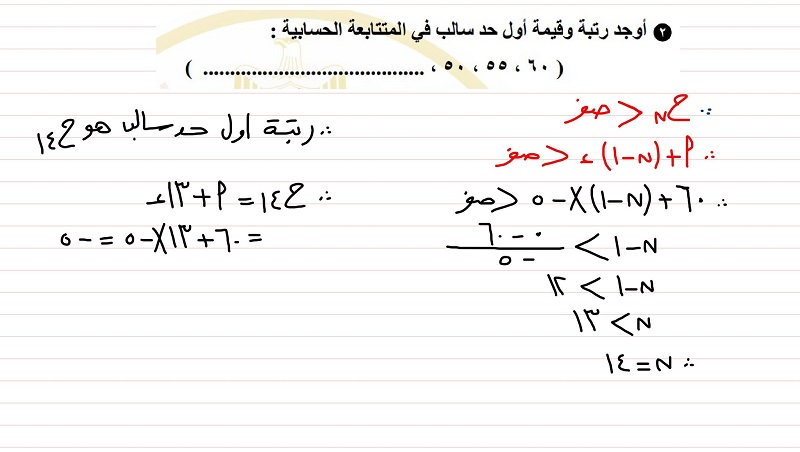 ٢ أوجد رتبة وقيمة أول حد سالب في المتتابعة الحسابية :
( ٦٠ ، ٥٥ ، ٥٠ ، ........................................ )
∵ ح ن < صفر
∴ م + (ن - ١) ء < صفر
∴ ٦٠ + (ن - ١) × - ٥ < صفر
ن - ١ > ٠ - ٦٠ / - ٥
ن - ١ > ١٢
ن > ١٣
∴ ن = ١٤
∴ رتبة اول حد سالب هو ح ١٤
∴ ح ١٤ = م + ١٣ ء
= ٦٠ + ١٣ × - ٥ = - ٥